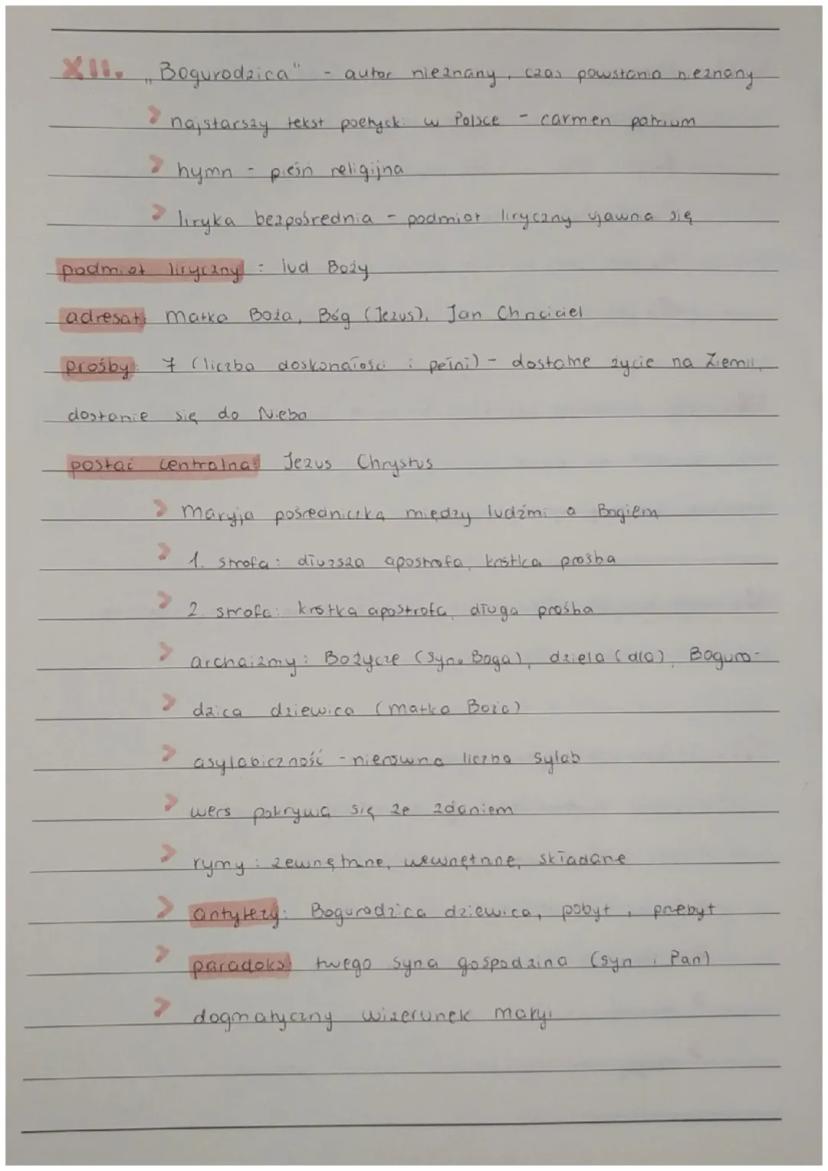 XII. „Bogurodzica" - autor nieznany, czas powstania nieznany
> najstarszy tekst poetycki w Polsce - carmen patrium
> hymn - pieśń religijna
> liryka bezpośrednia - podmiot liryczny ujawnia się
podmiot liryczny: lud Boży
adresat: Matka Boża, Bóg (Jezus), Jan Chrzciciel
prośby: 7 (liczba doskonałości i pełni) - dostatnie życie na Ziemi,
dostanie się do Nieba
postać centralna: Jezus Chrystus
> Maryja pośredniczką między ludźmi a Bogiem
> 1. strofa: dłuższa apostrofa, krótka prośba
> 2. strofa: krótka apostrofa, długa prośba
> archaizmy: Bożycze (syna Boga), dziela (dla), Boguro-
> dzica dziewica (matka Boża)
> asylabiczność - nierówna liczba sylab
> wers pokrywa się ze zdaniem
> rymy: zewnętrzne, wewnętrzne, składane
> antytezy: Bogurodzica dziewica, pobyt i przebyt
> paradoks: twego syna gospodzina (syn i Pan)
> dogmatyczny wizerunek Maryi